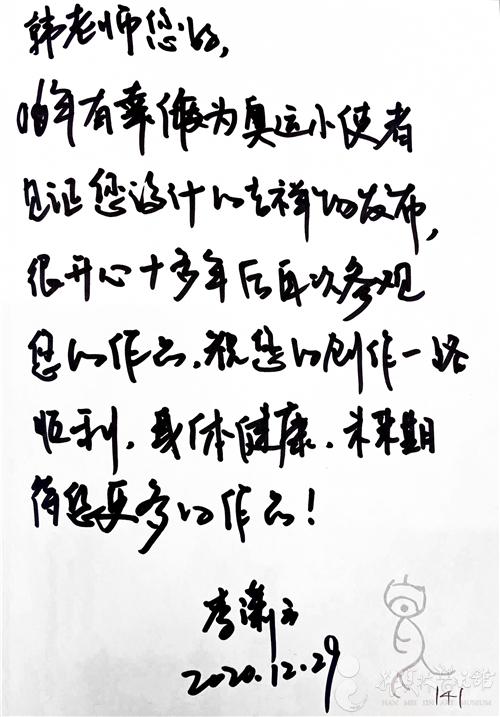 韩老师您好,
08年有幸做为奥运小使者
见证您设计的吉祥物发布,
很开心十多年后再次参观
您的作品.祝您的创作一路
顺利,身体健康.未来期
待您更多的作品!
李潇
2020.12.29
HAN MEI LIN ART MUSEUM
141